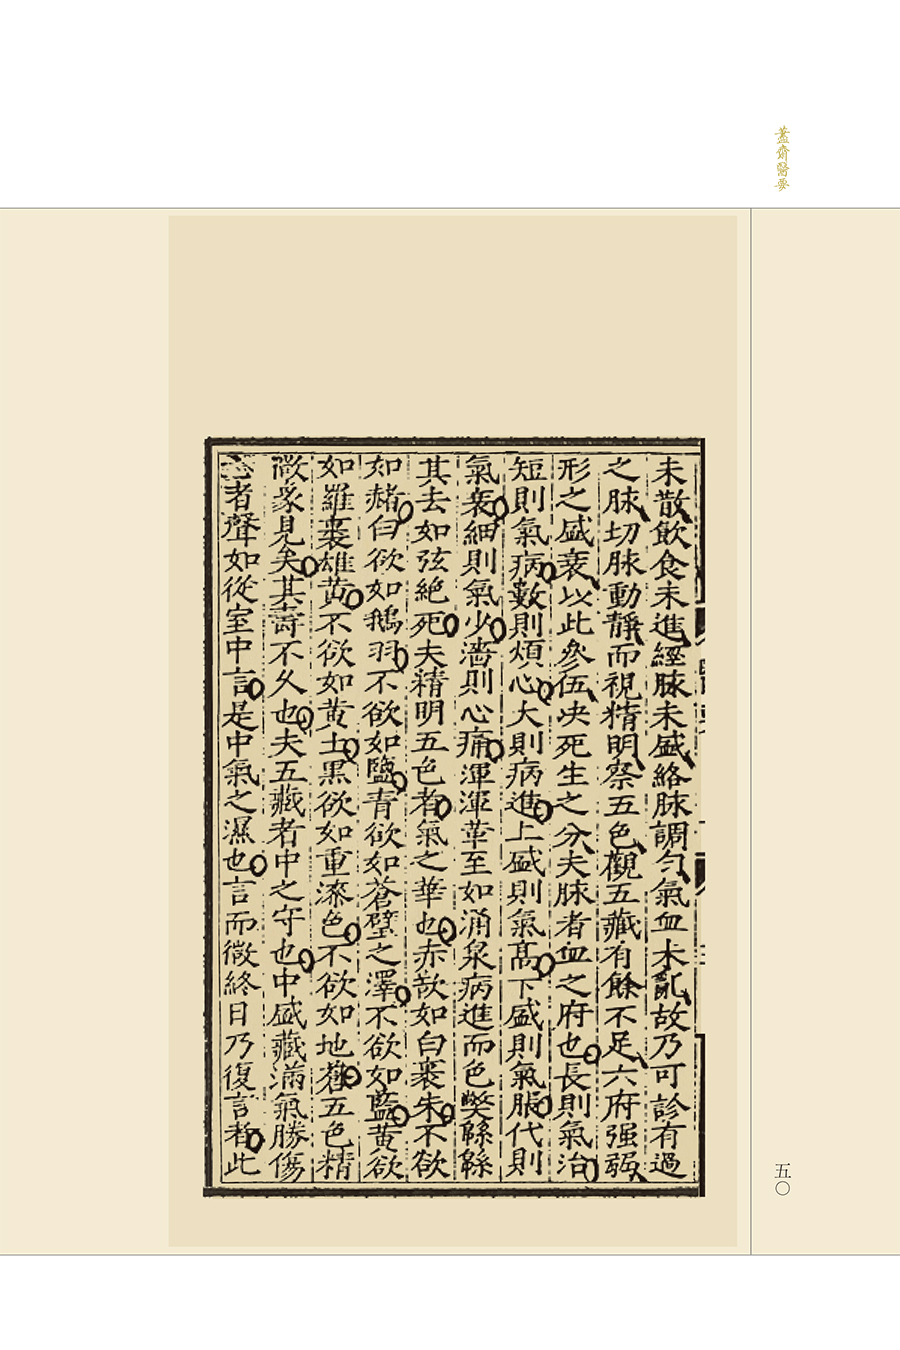 藎齋醫要
未散飲食未進經脉未盛絡脉調勻氣血未亂故乃可診有過
之脉切脉動靜而視精明察五色觀五藏有餘不足六府强弱
形之盛衰以此參伍决死生之分夫脉者血之府也長則氣治
短則氣病數則煩心大則病進上盛則氣髙下盛則氣脹代則
氣衰細則氣少濇則心痛渾渾革至如涌泉病進而色弊緜緜
其去如弦絶死夫精明五色者氣之華也赤欲如白裹朱不欲
如赭白欲如鵝羽不欲如鹽青欲如蒼璧之澤不欲如藍黄欲
如羅裹雄黄不欲如黄土黑欲如重漆色不欲如地蒼五色精
微象見矣其壽不久也夫五藏者中之守也中盛藏滿氣勝傷
恐者聲如從室中言是中氣之濕也言而微終日乃復言者此
五〇